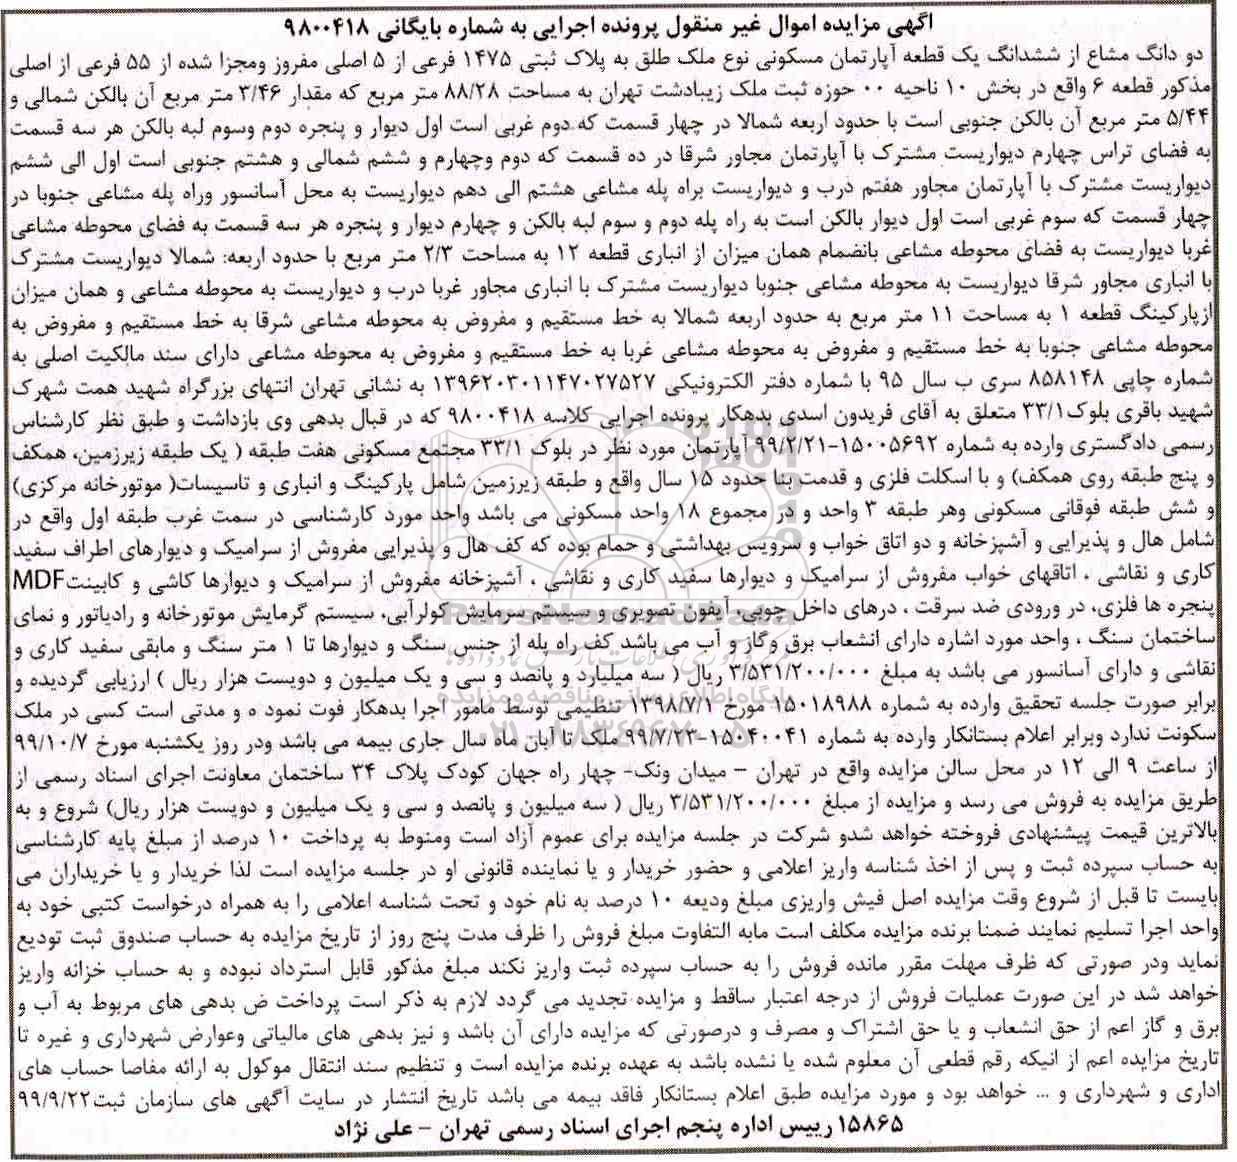 آگهی مزایده اموال غیر منقول پرونده اجرایی به شماره بایگانی ۹۸۰۰۴۱۸
دو دانگ مشاع از ششدانگ یک قطعه آپارتمان مسکونی نوع ملک طلق به پلاک ثبتی ۱۴۷۵ فرعی از ۵ اصلی مفروز ومجزا شده از ۵۵ فرعی از اصلی
مذکور قطعه ۶ واقع در بخش ۱۰ ناحیه ۰۰ حوزه ثبت ملک زیبادشت تهران به مساحت ۸۸/۲۸ متر مربع که مقدار ۳/۴۶ متر مربع آن بالکن شمالی و
۵/۴۴ متر مربع آن بالکن جنوبی است با حدود اربعه شمالا در چهار قسمت که دوم غربی است اول دیوار و پنجره دوم وسوم لبه بالکن هر سه قسمت
به فضای تراس چهارم دیواریست مشترک با آپارتمان مجاور شرقا در ده قسمت که دوم وچهارم و ششم شمالی و هشتم جنوبی است اول الی ششم
دیواریست مشترک با آپارتمان مجاور هفتم درب و دیواریست براه پله مشاعی هشتم الی دهم دیواریست به محل آسانسور وراه پله مشاعی جنوبا در
چهار قسمت که سوم غربی است اول دیوار بالکن است به راه پله دوم و سوم لبه بالکن و چهارم دیوار و پنجره هر سه قسمت به فضای محوطه مشاعی
غربا دیواریست به فضای محوطه مشاعی بانضمام همان میزان از انباری قطعه ۱۲ به مساحت ۲/۳ متر مربع با حدود اربعه: شمالا دیواریست مشترک
با انباری مجاور شرقا دیواریست به محوطه مشاعی جنوبا دیواریست مشترک با انباری مجاور غربا درب و دیواریست به محوطه مشاعی و همان میزان
ازپارکینگ قطعه ۱ به مساحت ۱۱ متر مربع به حدود اربعه شمالا به خط مستقیم و مفروض به محوطه مشاعی شرقا به خط مستقیم و مفروض به
محوطه مشاعی جنوبا به خط مستقیم و مفروض به محوطه مشاعی غربا به خط مستقیم و مفروض به محوطه مشاعی دارای سند مالکیت اصلی به
شماره چاپی ۸۵۸۱۴۸ سری ب سال ۹۵ با شماره دفتر الکترونیکی ۱۳۹۶۲۰۳۰۱۱۴۷۰۲۷۵۲۷ به نشانی تهران انتهای بزرگراه شهید همت شهرک
شهید باقری بلوک۳۳/۱ متعلق به آقای فریدون اسدی بدهکار پرونده اجرایی کلاسه ۹۸۰۰۴۱۸ که در قبال بدهی وی بازداشت و طبق نظر کارشناس
رسمی دادگستری وارده به شماره ۱۵۰۰۵۶۹۲-۹۹/۲/۲۱ آپارتمان مورد نظر در بلوک ۳۳/۱ مجتمع مسکونی هفت طبقه ( یک طبقه زیرزمین، همکف
و پنج طبقه روی همکف) و با اسکلت فلزی و قدمت بنا حدود ۱۵ سال واقع و طبقه زیرزمین شامل پارکینگ و انباری و تاسیسات( موتورخانه مرکزی)
و شش طبقه فوقانی مسکونی وهر طبقه ۳ واحد و در مجموع ۱۸ واحد مسکونی می باشد واحد مورد کارشناسی در سمت غرب طبقه اول واقع در
شامل هال و پذیرایی و آشپزخانه و دو اتاق خواب و سرویس بهداشتی و حمام بوده که کف هال و پذیرایی مفروش از سرامیک و دیوارهای اطراف سفید
کاری و نقاشی ، اتاقهای خواب مفروش از سرامیک و دیوارها سفید کاری و نقاشی ، آشپزخانه مفروش از سرامیک و دیوارها کاشی و کابینتMDF
پنجره ها فلزی، در ورودی ضد سرقت ، درهای داخل چوبی، آیفون تصویری و سیستم سرمایش کولرآبی، سیستم گرمایش موتورخانه و رادیاتور و نمای
ساختمان سنگ ، واحد مورد اشاره دارای انشعاب برق وگاز و آب می باشد کف راه پله از جنس سنگ و دیوارها تا ۱ متر سنگ و مابقی سفید کاری و
نقاشی و دارای آسانسور می باشد به مبلغ ۳/۵۳۱/۲۰۰/۰۰۰ ریال ( سه میلیارد و پانصد و سی و یک میلیون و دویست هزار ریال ) ارزیابی گردیده و
برابر صورت جلسه تحقیق وارده به شماره ۱۵۰۱۸۹۸۸ مورخ ۱۳۹۸/۷/۱ تنظیمی توسط مامور اجرا بدهکار فوت نمود ه و مدتی است کسی در ملک
سکونت ندارد وبرابر اعلام بستانکار وارده به شماره ۱۵۰۴۰۰۴۱-۹۹/۷/۲۳ ملک تا آبان ماه سال جاری بیمه می باشد ودر روز یکشنبه مورخ ۹۹/۱۰/۷
از ساعت ۹ الی ۱۲ در محل سالن مزایده واقع در تهران – میدان ونک- چهار راه جهان کودک پلاک ۳۴ ساختمان معاونت اجرای اسناد رسمی از
طریق مزایده به فروش می رسد و مزایده از مبلغ ۳/۵۳۱/۲۰۰/۰۰۰ ریال ( سه میلیون و پانصد و سی و یک میلیون و دویست هزار ریال) شروع و به
بالاترین قیمت پیشنهادی فروخته خواهد شدو شرکت در جلسه مزایده برای عموم آزاد است ومنوط به پرداخت ۱۰ درصد از مبلغ پایه کارشناسی
به حساب سپرده ثبت و پس از اخذ شناسه واریز اعلامی و حضور خریدار و یا نماینده قانونی او در جلسه مزایده است لذا خریدار و یا خریداران می
بایست تا قبل از شروع وقت مزایده اصل فیش واریزی مبلغ ودیعه ۱۰ درصد به نام خود و تحت شناسه اعلامی را به همراه درخواست کتبی خود به
واحد اجرا تسلیم نمایند ضمنا برنده مزایده مکلف است مابه التفاوت مبلغ فروش را ظرف مدت پنج روز از تاریخ مزایده به حساب صندوق ثبت تودیع
نماید ودر صورتی که ظرف مهلت مقرر مانده فروش را به حساب سپرده ثبت واریز نکند مبلغ مذکور قابل استرداد نبوده و به حساب خزانه واریز
خواهد شد در این صورت عملیات فروش از درجه اعتبار ساقط و مزایده تجدید می گردد لازم به ذکر است پرداخت ض بدهی های مربوط به آب و
برق و گاز اعم از حق انشعاب و یا حق اشتراک و مصرف و درصورتی که مزایده دارای آن باشد و نیز بدهی های مالیاتی وعوارض شهرداری و غیره تا
تاریخ مزایده اعم از انیکه رقم قطعی آن معلوم شده یا نشده باشد به عهده برنده مزایده است و تنظیم سند انتقال موکول به ارائه مفاصا حساب های
اداری و شهرداری و ... خواهد بود و مورد مزایده طبق اعلام بستانکار فاقد بیمه می باشد تاریخ انتشار در سایت آگهی های سازمان ثبت۹۹/۹/۲۲
۱۵۸۶۵ رییس اداره پنجم اجرای اسناد رسمی تهران – علی نژاد